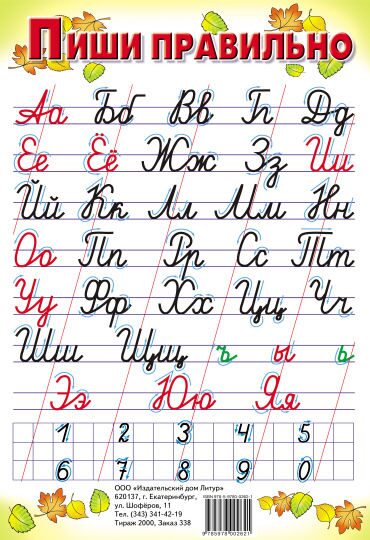 Пиши правильно
Аа Бб Вв Гг Дд
Ее Ёё Жж Зз Ии
Йй Кк Лл Мм Нн
Оо Пп Рр Сс Тт
Уу Фф Хх Цц Чч
Шш Щщ ъ ы ь
Ээ Юю Яя
1 2 3 4 5
6 7 8 9 0
ООО «Издательский дом Литур»
620137, г. Екатеринбург,
ул. Шофёров, 11
Тел. (343) 341-42-19
Тираж 2000, Заказ 338